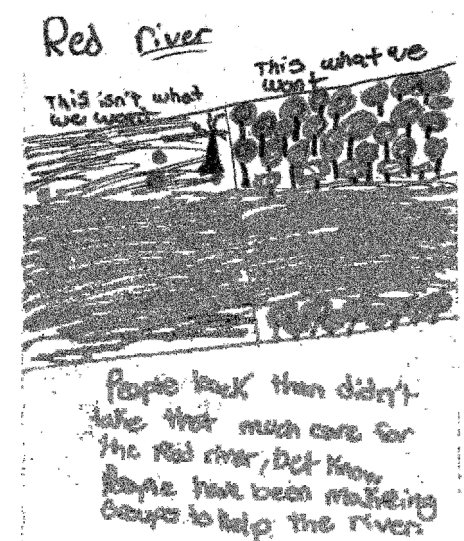 Red river
This isn't what
we want
This what we
want
People back then didn't
take that much care for
the Red river, but know
People have been makeing
Groups to help the river.